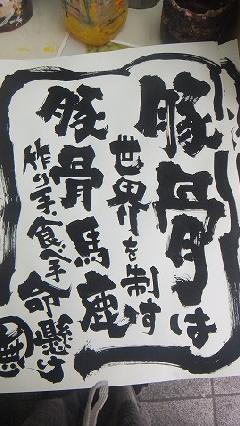 豚骨は
世界を制す
豚骨馬鹿
作り手食べ手命懸け
無